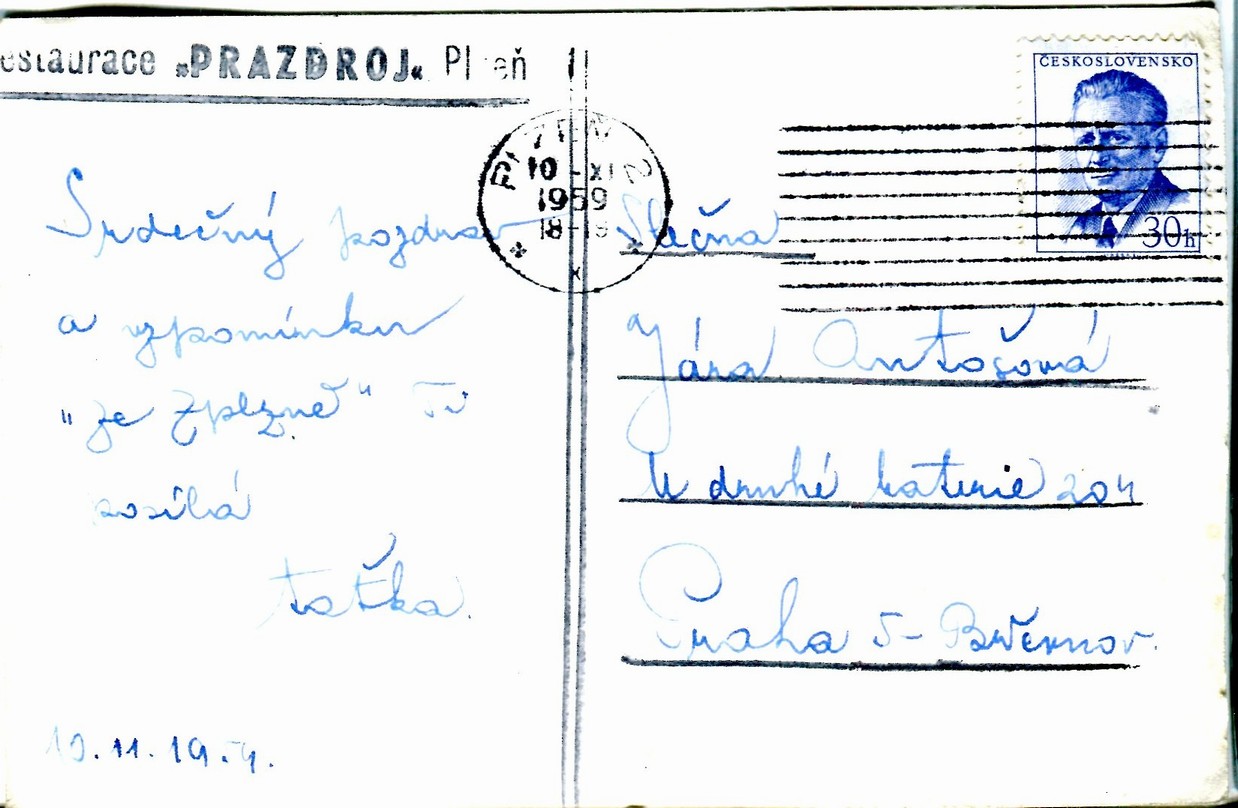 estaurace „PRAZDROJ“ Plzeň
Srdečný pozdrav
a vzpomínku
"ze Zplzně" Ti
posílá
taťka.
10.11.1959.
PLZEŇ 2
10 -XI
1959
18-19
ČESKOSLOVENSKO
30h
Slečna
Jára Antošová
U druhé baterie 204
Praha 5- Břevnov.